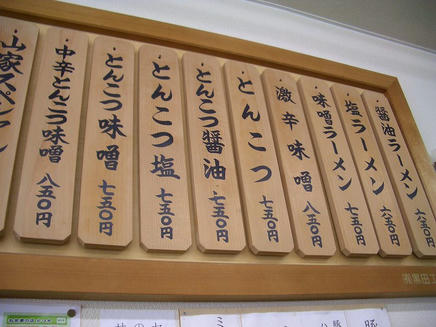 醤油ラーメン 六五〇円
塩ラーメン 六五〇円
味噌ラーメン 七五〇円
激辛味噌 八五〇円
とんこつ 七五〇円
とんこつ醤油 七五〇円
とんこつ塩 七五〇円
とんこつ味噌 七五〇円
中辛とんこつ味噌 八五〇円
山家スペシャル